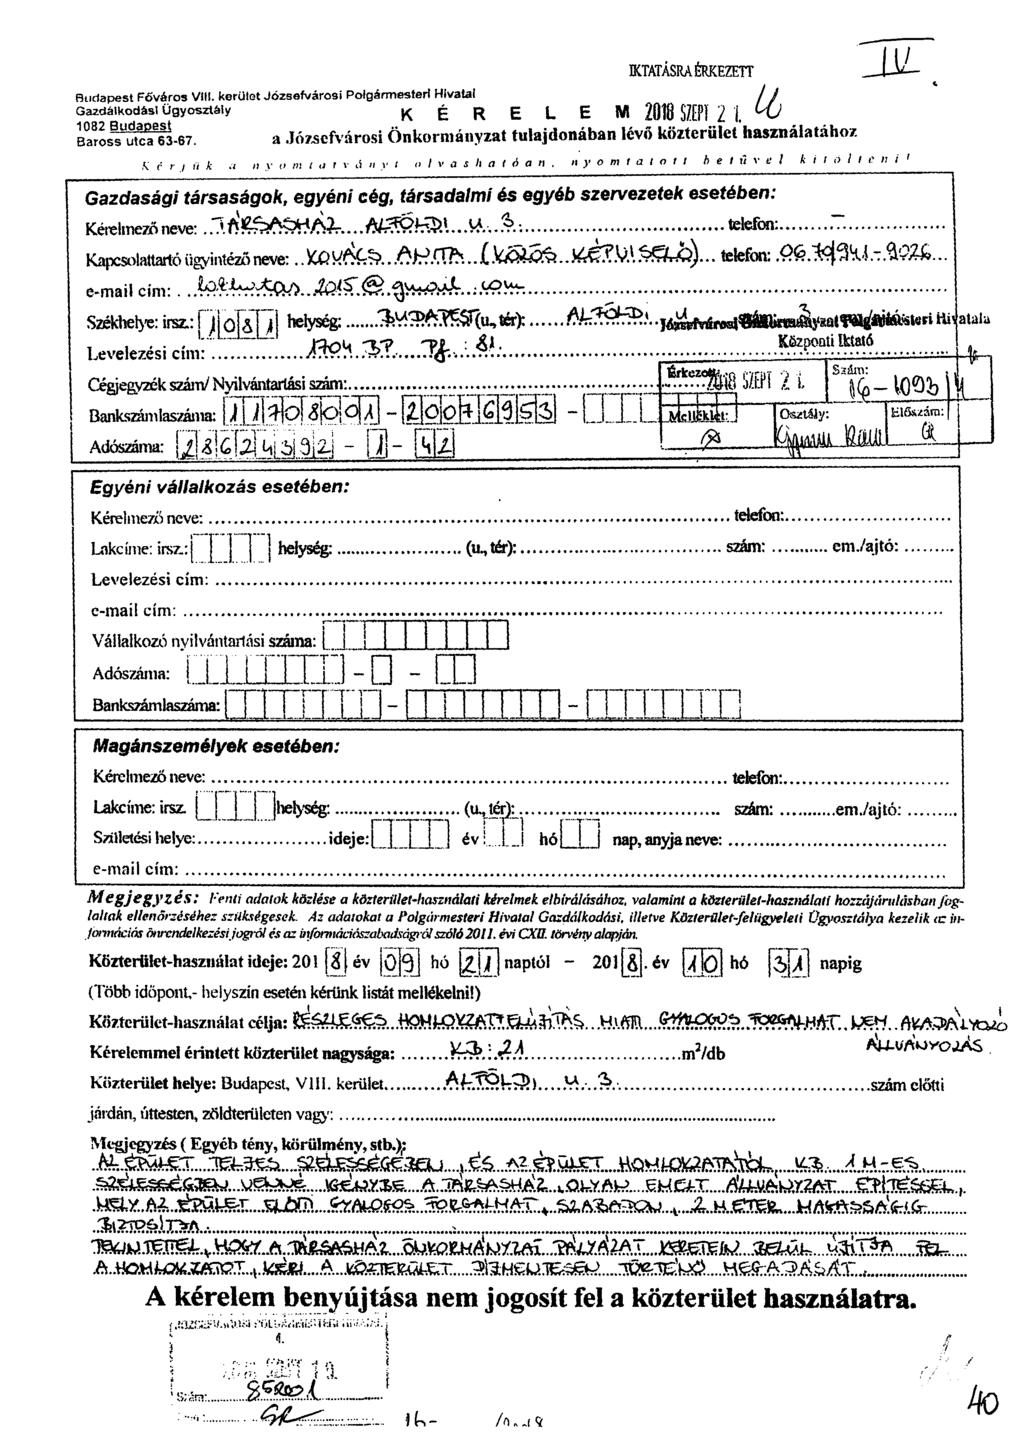 IV
IKTATÁSRA ÉRKEZETT
Budapest Főváros VIII. kerület Józsefvárosi Polgármesteri Hivatal
Gazdálkodási Ügyosztály
K É R E L E M 2018 SZEPT 21.
1082 Budapest
Baross utca 63-67.
a Józsefvárosi Önkormányzat tulajdonában lévő közterület használatához
Kérjük a nyomtatványt olvashatóan, nyomtatott betűvel kitölteni!
Gazdasági társaságok, egyéni cég, társadalmi és egyéb szervezetek esetében:
Kérelmező neve: TÁRSASHÁZ ALFÖLDI U. 3. telefon: –
Kapcsolattartó ügyintéző neve: KOVÁCS ANITA (KÖZÖS KÉPVISELŐ) telefon: 06 70/941-9026
e-mail cím: 2015@gmail.com
Székhelye: irsz.: 1081 helység: BUDAPEST (u., tér): ALFÖLDI U 3
Józsefvárosi Önkormányzat Polgármesteri Hivatala
Levelezési cím: 1704 BP Pf.: 81.
Központi Iktató
Cégjegyzék szám/ Nyilvántartási szám:
Érkezett: 2018 SZEPT 21. Szám: 16-1093/4
Bankszámlaszáma: 11708001 - 20076953 -
Melléklet: Osztály: Előszám:
Adószáma: 28624392 - 1 - 42
Egyéni vállalkozás esetében:
Kérelmező neve: telefon:
Lakcíme: irsz.: helység: (u., tér): szám: em./ajtó:
Levelezési cím:
e-mail cím:
Vállalkozó nyilvántartási száma:
Adószáma: - -
Bankszámlaszáma: - -
Magánszemélyek esetében:
Kérelmező neve: telefon:
Lakcíme: irsz. helység: (u., tér): szám: em./ajtó:
Születési helye: ideje: év hó nap, anyja neve:
e-mail cím:
Megjegyzés: Fenti adatok közlése a közterület-használati kérelmek elbírálásához, valamint a közterület-használati hozzájárulásban fog-
laltak ellenőrzéséhez szükségesek. Az adatokat a Polgármesteri Hivatal Gazdálkodási, illetve Közterület-felügyeleti Ügyosztálya kezelik az in-
formációs önrendelkezési jogról és az információszabadságról szóló 2011. évi CXII. törvény alapján.
Közterület-használat ideje: 2018 év 09 hó 21 naptól - 2018. év 10 hó 31 napig
(Több időpont,- helyszín esetén kérünk listát mellékelni!)
Közterület-használat célja: RÉSZLEGES HOMLOKZATFELÚJÍTÁS MIATT GYALOGOS FORGALMAT NEM AKADÁLYOZÓ
ÁLLVÁNYOZÁS.
Kérelemmel érintett közterület nagysága: KB: 21 m²/db
Közterület helye: Budapest, VIII. kerület ALFÖLDI U. 3. szám előtti
járdán, úttesten, zöldterületen vagy:
Megjegyzés ( Egyéb tény, körülmény, stb.):
AZ ÉPÜLET TELJES SZÉLESSÉGÉBEN, ÉS AZ ÉPÜLET HOMLOKZATÁTÓL KB. 1 M-ES
SZÉLESSÉGBEN VENNÉ IGÉNYBE A TÁRSASHÁZ, OLYAN EMELT ÁLLVÁNYZAT ÉPÍTÉSSEL,
MELY AZ ÉPÜLET ELŐTTI GYALOGOS FORGALMAT, SZABADON, 2 METER MAGASSÁGIG
BIZTOSÍTJA.
TEKINTETTEL, HOGY A TÁRSASHÁZ ÖNKORMÁNYZATI PÁLYÁZAT KERETEIN BELÜL ÚJÍTJA FEL
A HOMLOKZATOT, KÉRI A KÖZTERÜLET DÍJMENTESEN TÖRTÉNŐ MEGADÁSÁT.
A kérelem benyújtása nem jogosít fel a közterület használatra.
JÓZSEFVÁROSI POLGÁRMESTERI HIVATAL
4.
2018 SZEPT 19.
Szám: 852001
40
16-